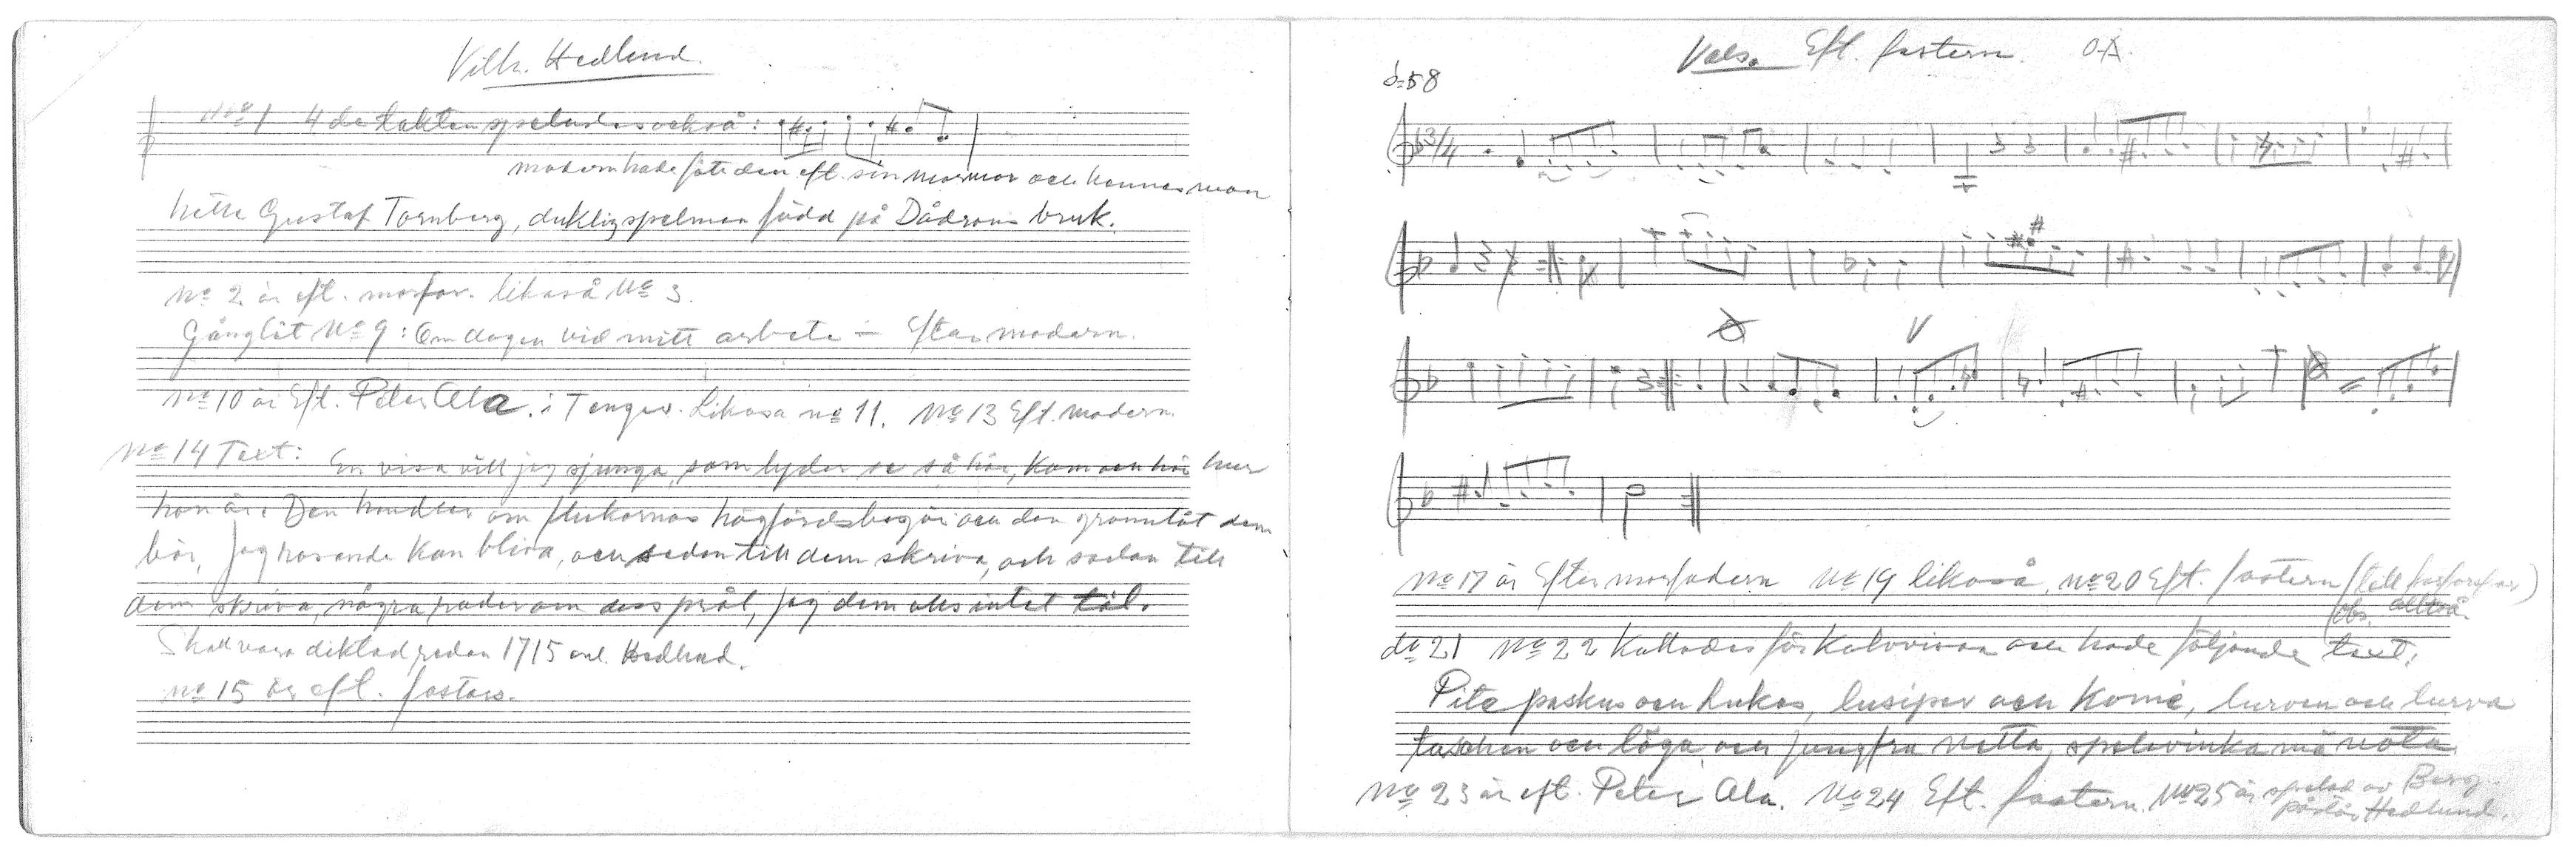 Vilh. Hedlund.
No 1 4de takten spelades också:
modern hade fått den eft. sin mormor och hennes man
hette Gustaf Tornberg, duktig spelman född på Dådrans bruk.
No 2 är eft. morfar. likaså No 3.
Gånglåt No 9: Om dagen vid mitt arbete – Efter modern.
No 10 är Eft. Peter Ala. i Tenger. Likaså no 11. No 13 Eft. modern.
No 14 Text: En visa vill jag sjunga, som lyder så här, kom och hör hur
hon är. Den handlar om flickornas högfärdsbegär och den grannlåt dom
bär, Jag rosande kan bliva, och sedan till dem skriva, och sedan till
dem skriva, några rader om dess prål, jag dem alls intet tål.
Skall vara diktad redan 1715 enl. Hedlund.
no 15 är eft. fastern.
Vals. Eft. fastern.
=58
3/4
No 17 är Efter morfadern No 19 likaså. no 20 Eft. fastern (till farfarsfar)
obs. alltså.
do 21 No 22 Kallades för Kalvvisan och hade följande text:
Pite paskus och Lukas, lusiper och Kome, lurven och lurva
och löga och jungfru netta, mä nöta
No 23 är eft. Peter Ala. No 24 Eft. fastern. No 25 är spelad av Berg.
påstår Hedlund.